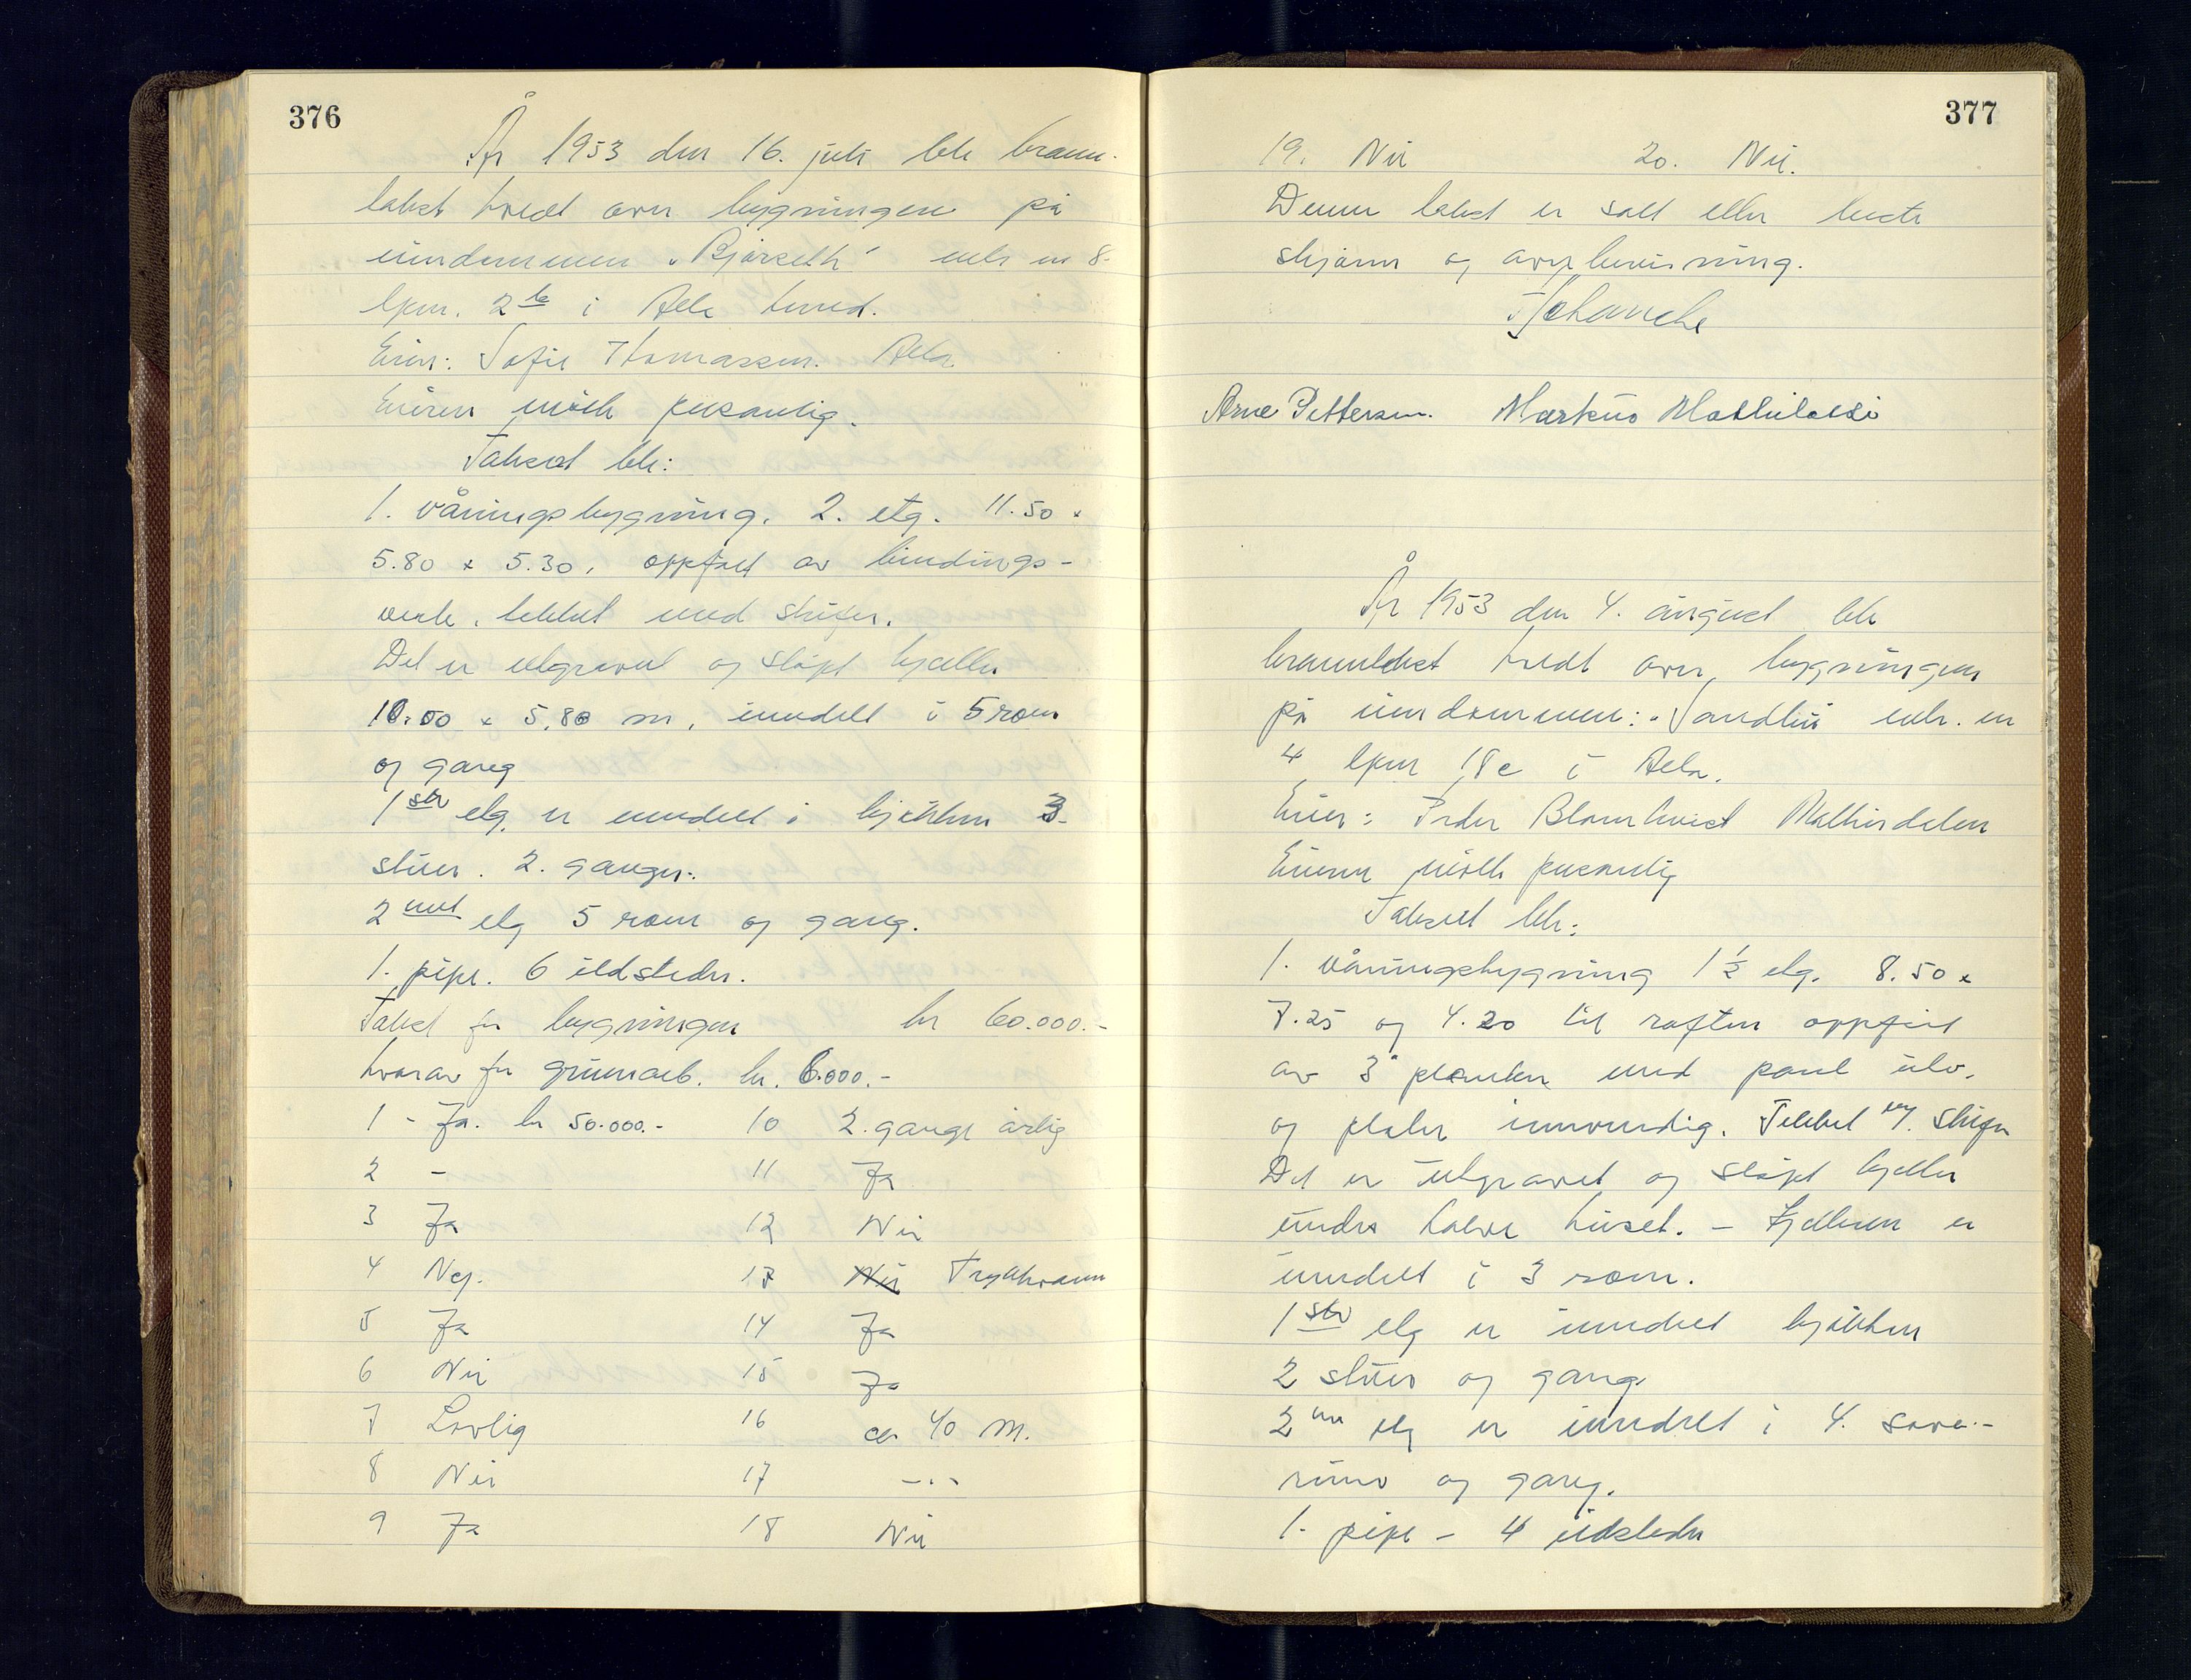 376
År 1953 den 16. juli ble brann-
takst holdt over bygningen på
eiendommen "Bjørseth" utb. nr 8.
lpnr. 2 b i Alta herred.
Eier: Sofie Thomassen. Alta
Eieren møtte personlig.
Taksert ble:
1. våningsbygning. 2. etg. 11.50 x
5.80 x 5.30, oppført av bindings-
verk, tekket med skifer.
Det er utgravet og støpt kjeller
10.00 x 5.80 m, inndelt i 5 rom
og gang
1ste etg. er inndelt i kjøkken 3-
stuer. 2. ganger.
2net etg 5 rom og gang.
1. pipe. 6 ildsteder.
Takst for bygningen kr 60.000.-
hvorav for grunnarb. kr. 6.000.-
1 - Ja. kr 50.000.- 10 2. gange årlig
2 - 11 Ja
3 Ja 12 Nei
4 Nej. 13 Nei Trykkvann
5 Ja 14 Ja
6 Nei 15 Ja
7 Lovlig 16 ca 40 m.
8 Nei 17 -..
9 Ja 18 Nei
377
19. Nei 20. Nei.
Denne takst er satt etter beste
skjønn og overbevisning.
Arne Pettersen. Markus Mathilassi
År 1953 den 4. august ble
branntakst holdt over bygningen
på eiendommen: "Sandliu utb. nr
4 lpnr 18c i Alta.
Eier: Peder Blomkvist Mathisdalen
Eieren møtte personlig
Taksert ble:
1. våningsbygning 1 1/2 etg. 8.50 x
7.25 og 4.20 til raften oppført
av 3" planker med panel utv.
og plater innvendig. Tekket m/. skifer
Det er utgravet og støpt kjeller
under halve huset. - Kjelleren er
inndelt i 3 rom.
1ste etg er inndelt kjøkken
2 stuer og gang
2nn etg er inndelt i 4. sove-
rums og gang.
1. pipe - 4 ildsteder